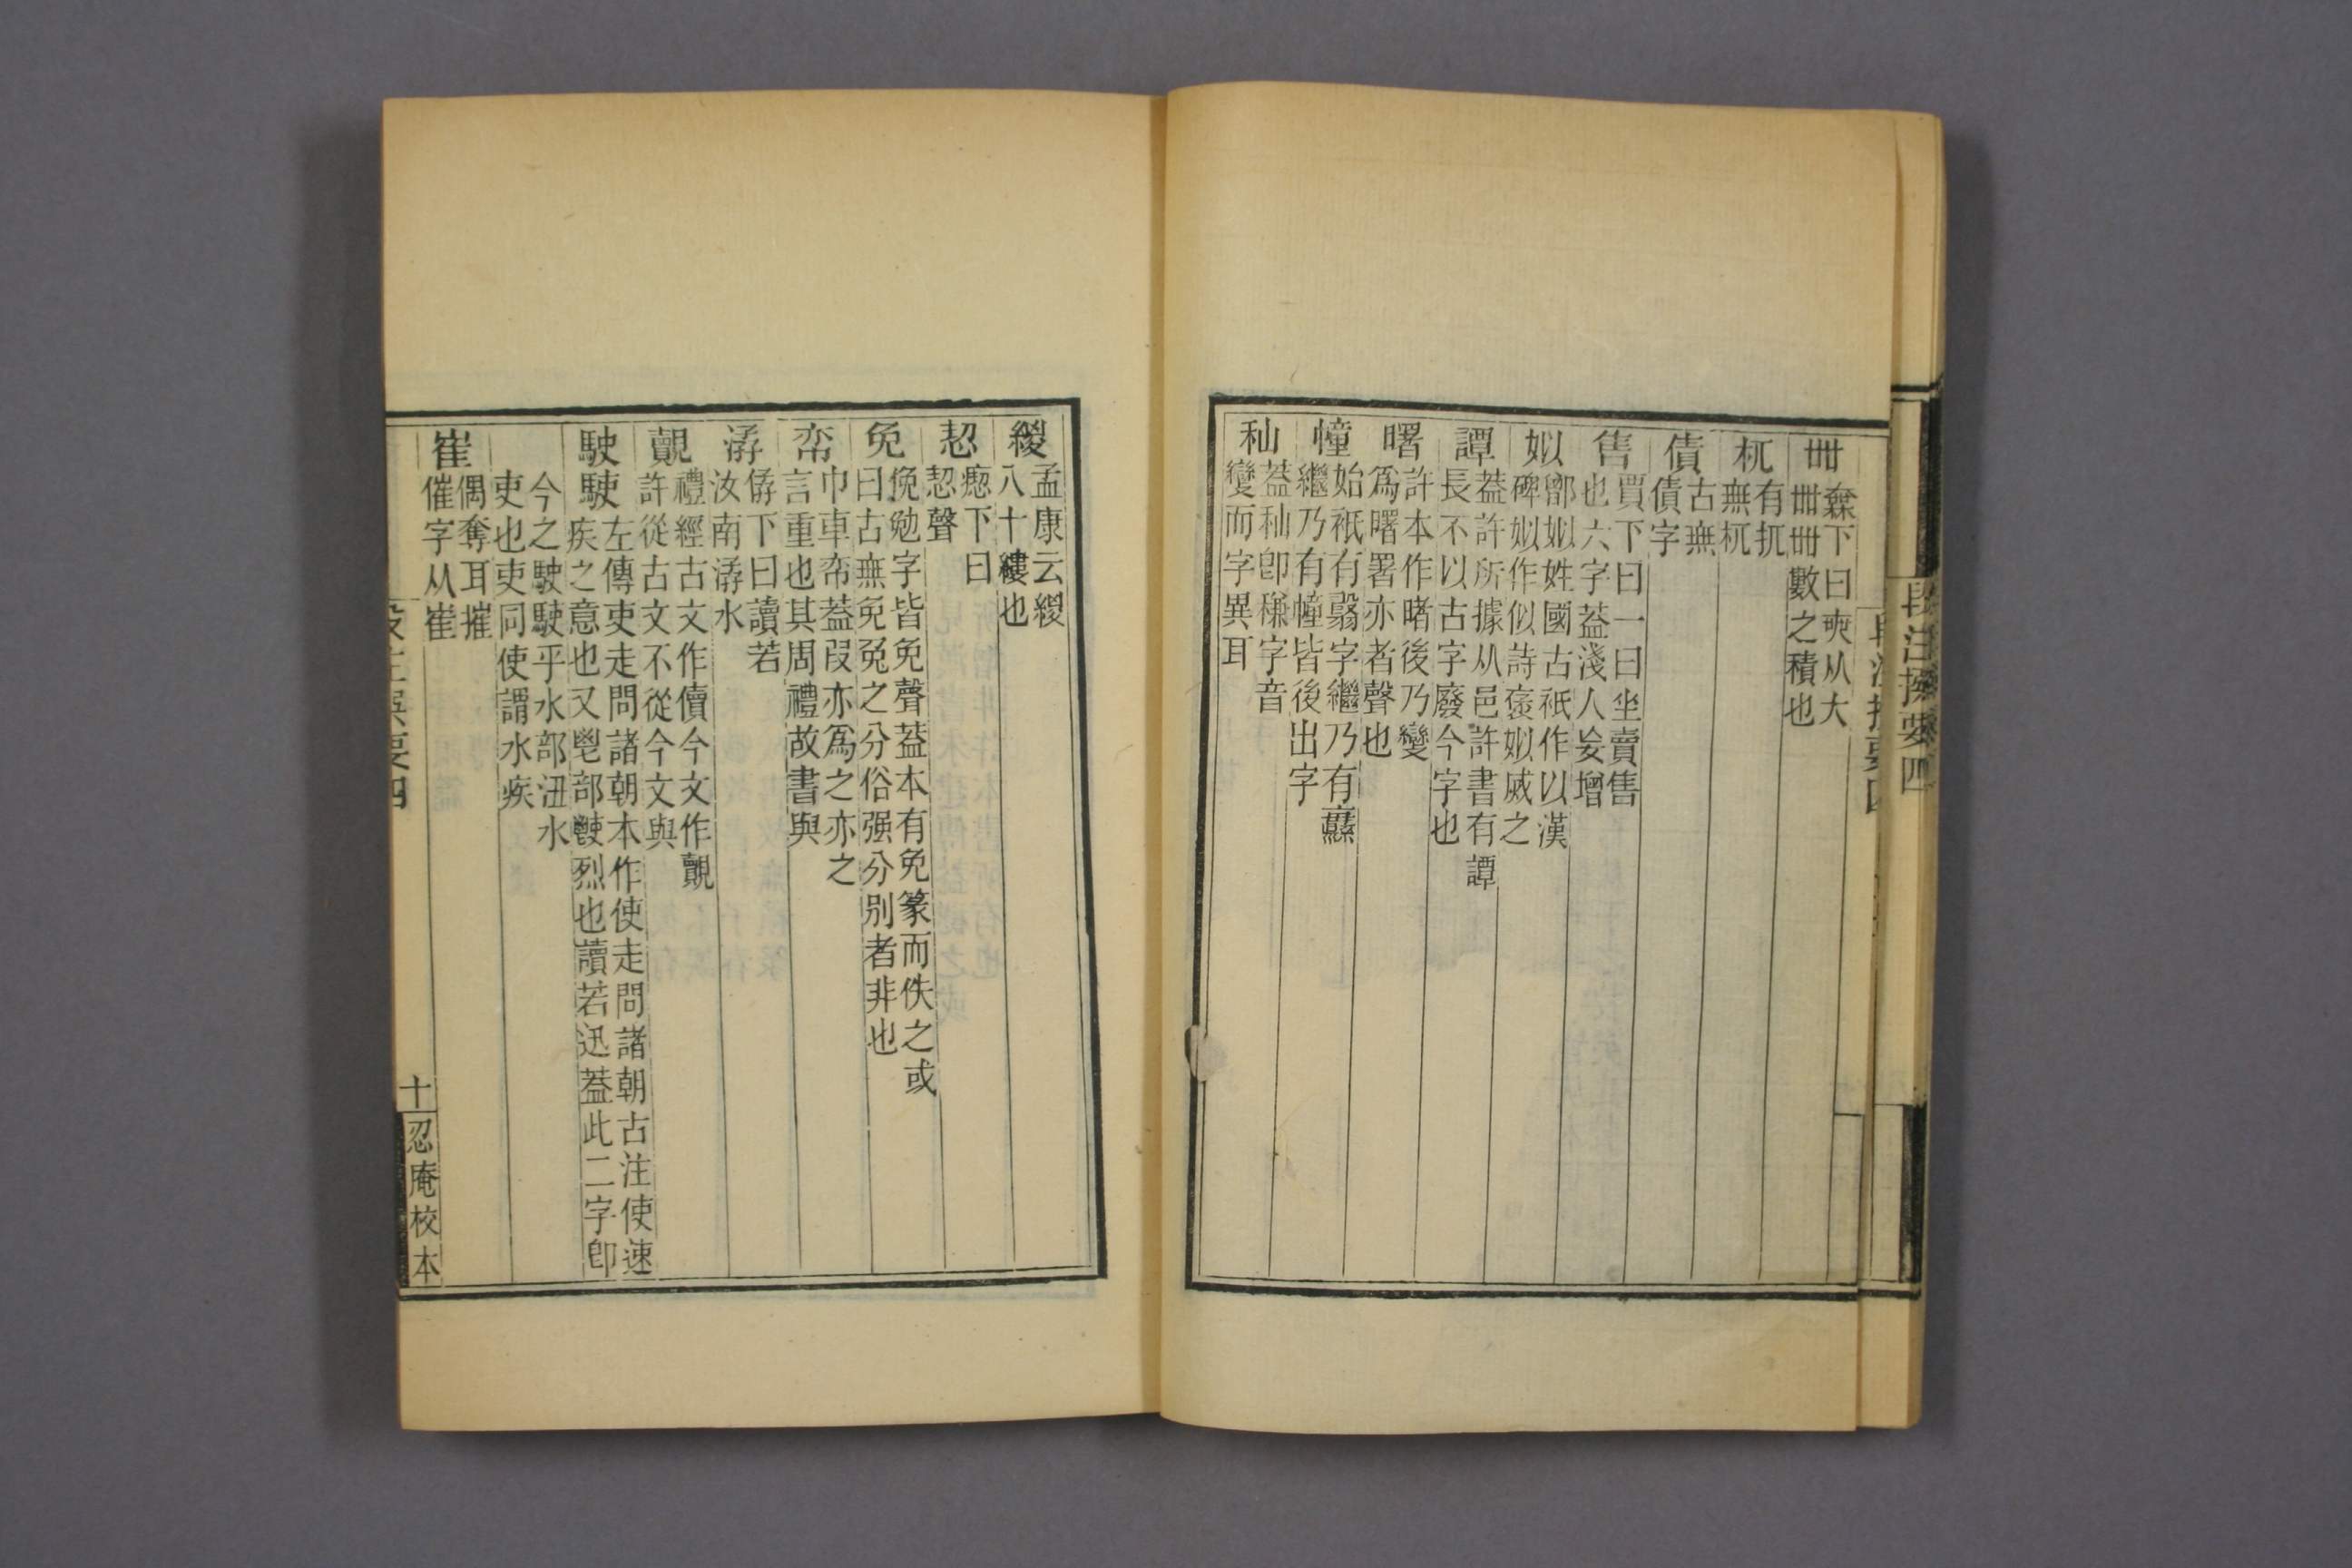 卌
橆下曰奭从大
卌卌卌數之積也
杌
有扤
無杌
債
古無
債字
售
賈下曰一曰坐賣售
也六字葢淺人妄增
姒
鄫姒姓國古衹作以漢
碑姒作似詩褒姒烕之
譚
葢許所據从邑許書有譚
長不以古字廢今字也
曙
許本作睹後乃變
爲曙署亦者聲也
幢
始衹有翳字繼乃有纛
繼乃有幢皆後出字
秈
葢秈卽稴字音
變而字異耳
緵
孟康云緵
八十縷也
恝
瘛下曰
恝聲
免
俛勉字皆免聲葢本有免篆而佚之或
曰古無免兔之分俗强分別者非也
帟
巾車帟葢叚亦爲之亦之
言重也其周禮故書與
㵀
㑉下曰讀若
汝南㵀水
覿
禮經古文作儥今文作覿
許從古文不從今文與
駛駛
左傳吏走問諸朝本作使走問諸朝古注使速
疾之意也又鬯部𩰲烈也讀若迅葢此二字卽
今之駛駛乎水部沑水
吏也吏同使謂水疾
崔
偶奪耳摧
催字从崔
十
忍庵校本
段注撰要四